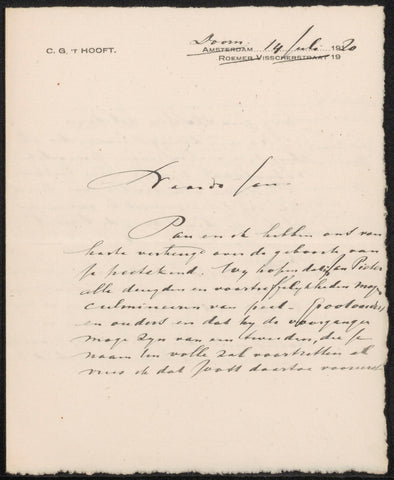 C. G. 'T HOOFT.
Doorn.
AMSTERDAM 14 Juli 1920
ROEMER VISSCHERSTRAAT 19
Waarde Jan.
Pan en ik hebben ons van
harte verheugd over de geboorte van
je petekind. Wy hopen dat Jan Pieter
alle deugden en voortreffelykheden moge
culmineeren van peet- grootouders
en ouders en dat hy de voorganger
moge zyn van een tweeden, die je
naam ten volle zal voortzetten al
vrees ik dat Joost daartoe